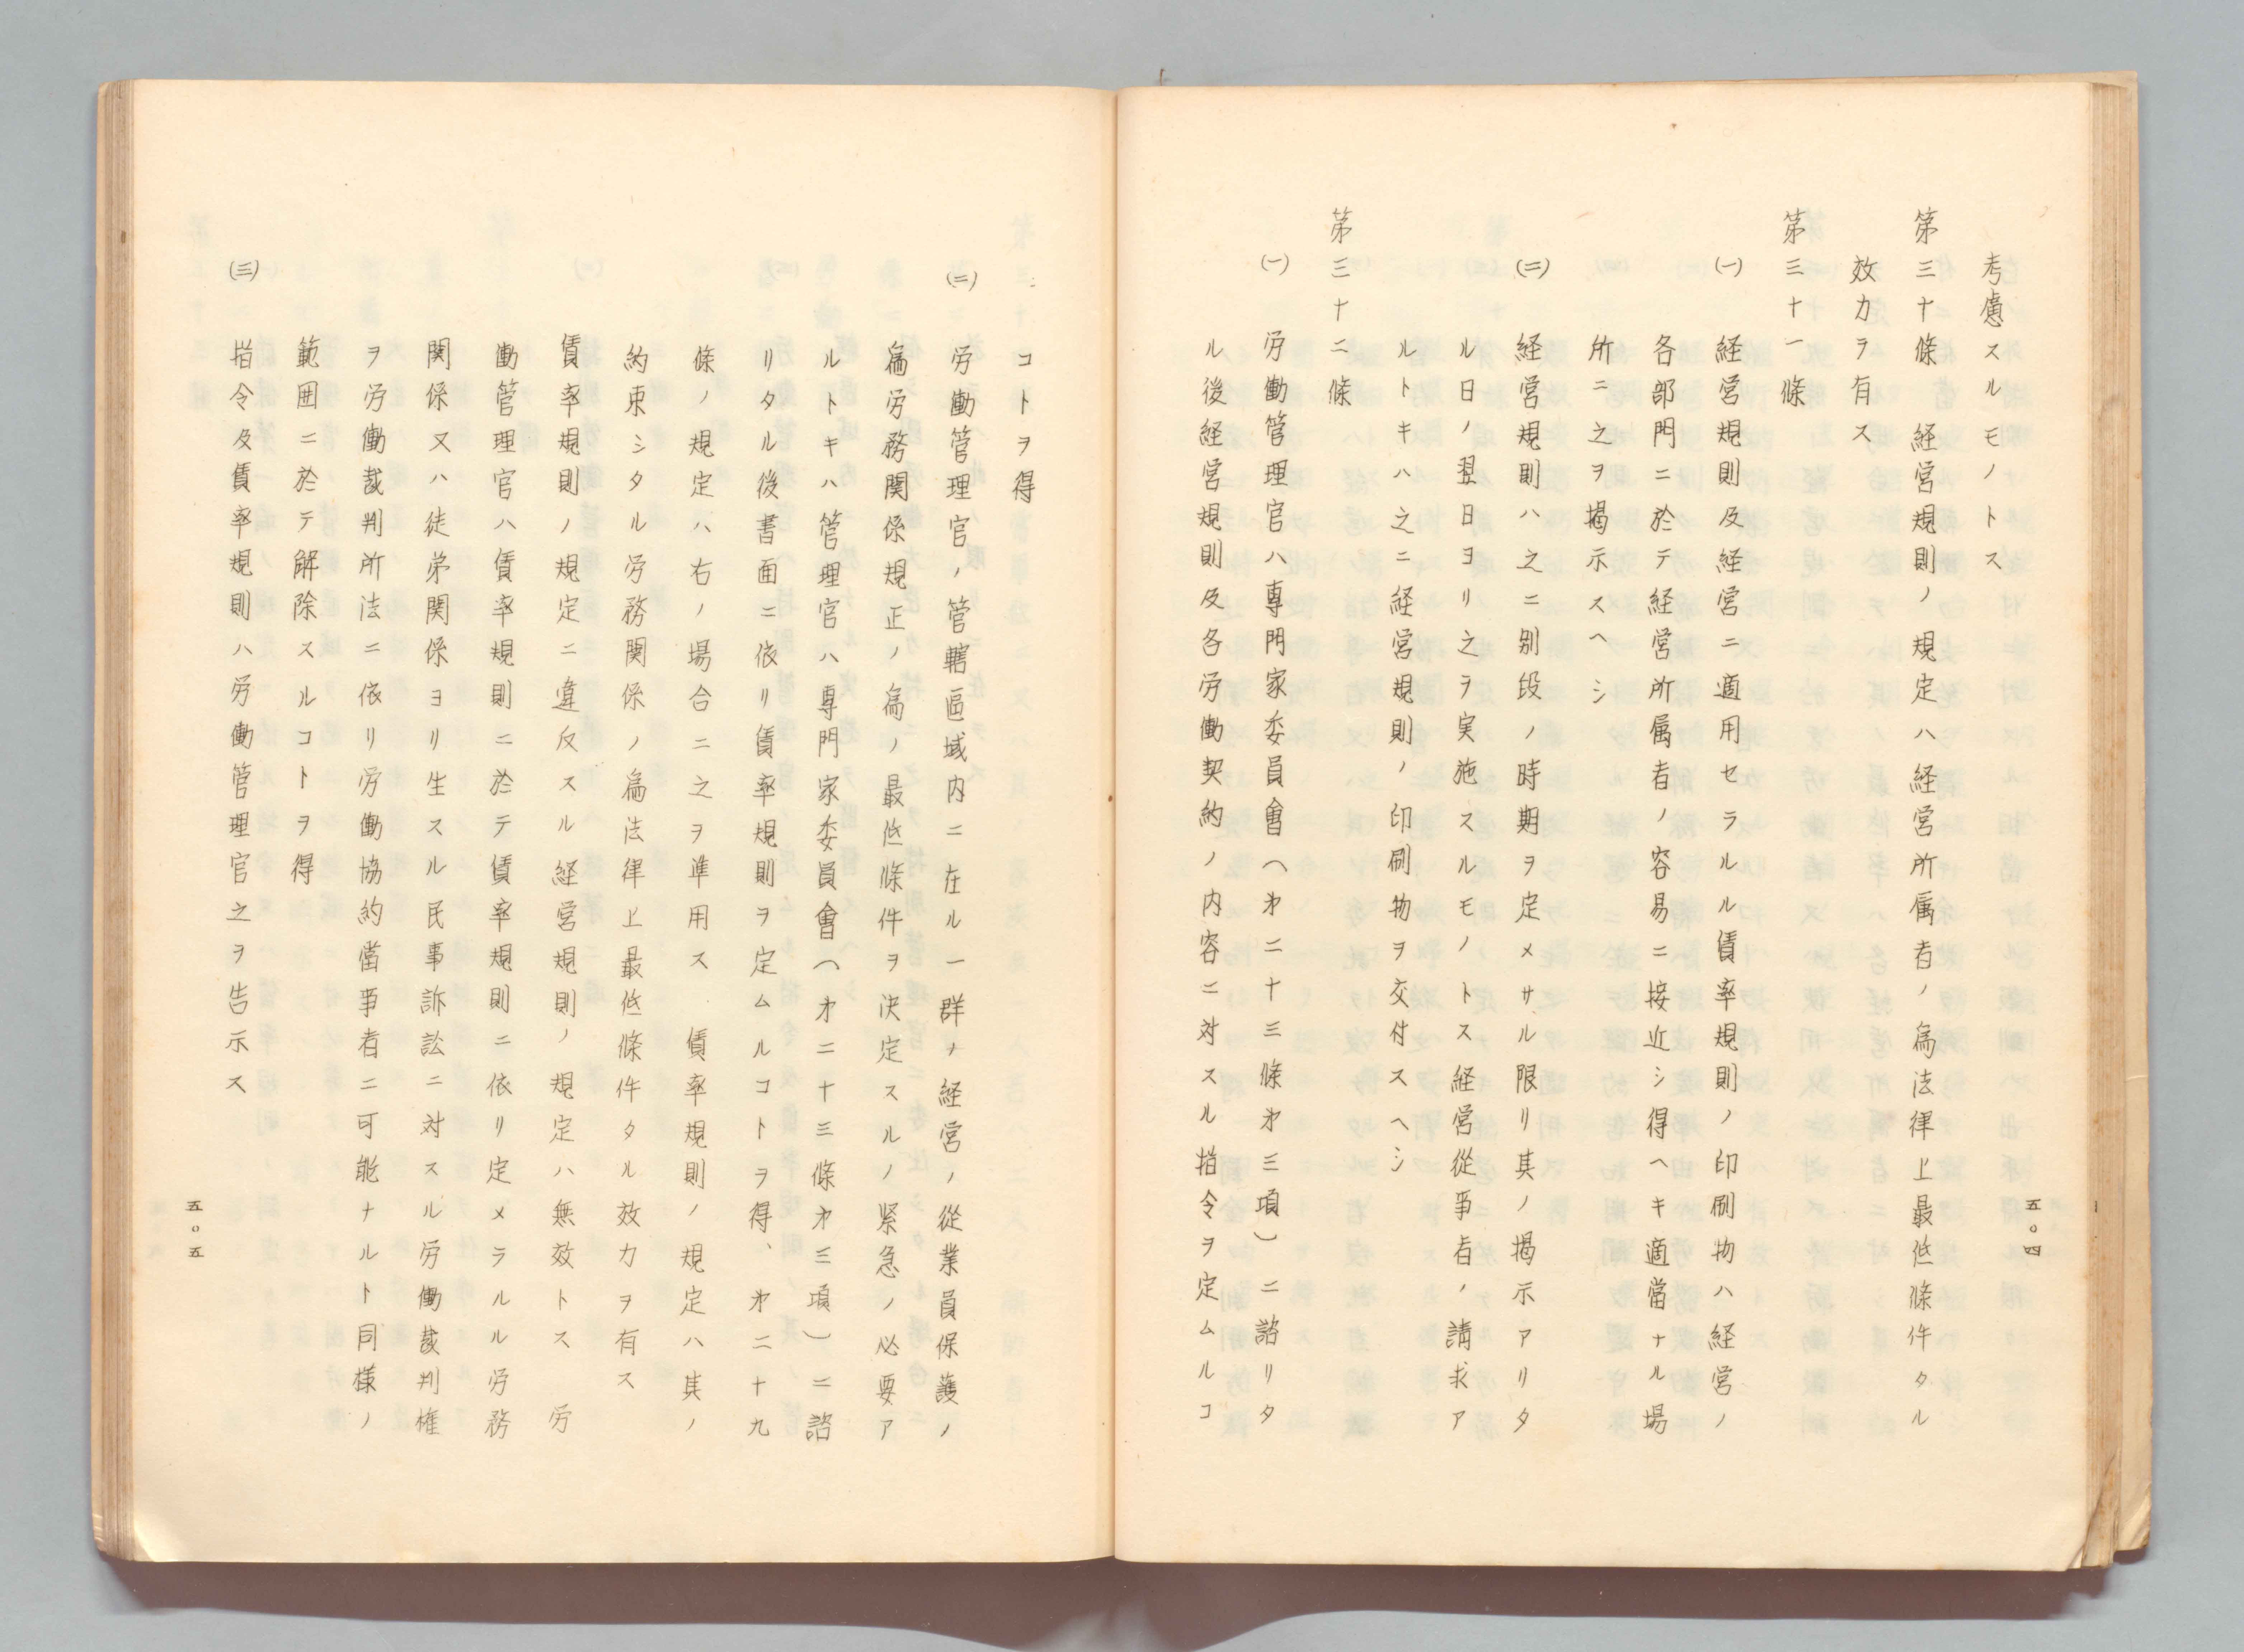 考慮スルモノトス
第三十條　経営規則ノ規定ハ経営所属者ノ為法律上最低條件タル
効力ヲ有ス
第三十一條
(一)　経営規則及経営ニ適用セラルル賃率規則ノ印刷物ハ経営ノ
各部門ニ於テ経営所属者ノ容易ニ接近シ得ヘキ適當ナル場
所ニ之ヲ掲示スヘシ
(二)　経営規則ハ之ニ別段ノ時期ヲ定メサル限リ其ノ掲示アリタ
ル日ノ翌日ヨリ之ヲ実施スルモノトス　経営従事者ノ請求ア
ルトキハ之ニ経営規則ノ印刷物ヲ交付スヘシ
第三十二條
(一)　労働管理官ハ専門家委員會（第二十三條第三項）ニ諮リタ
ル後経営規則及各労働契約ノ内容ニ対スル指令ヲ定ムルコ
五〇四
コトヲ得
(二)　労働管理官ノ管轄區域内ニ在ル一群ノ経営ノ従業員保護ノ
為労務関係規正ノ為ノ最低條件ヲ決定スルノ緊急ノ必要ア
ルトキハ管理官ハ専門家委員會（第二十三條第三項）ニ諮
リタル後書面ニ依リ賃率規則ヲ定ムルコトヲ得、第二十九
條ノ規定ハ右ノ場合ニ之ヲ準用ス　賃率規則ノ規定ハ其ノ
約束シタル労務関係ノ為法律上最低條件タル効力ヲ有ス
賃率規則ノ規定ニ違反スル経営規則ノ規定ハ無効トス　労
働管理官ハ賃率規則ニ於テ賃率規則ニ依リ定メラルル労務
関係又ハ徒弟関係ヨリ生スル民事訴訟ニ対スル労働裁判権
ヲ労働裁判所法ニ依リ労働協約當事者ニ可能ナルト同様ノ
範囲ニ於テ解除スルコトヲ得
(三)　指令及賃率規則ハ労働管理官之ヲ告示ス
五〇五